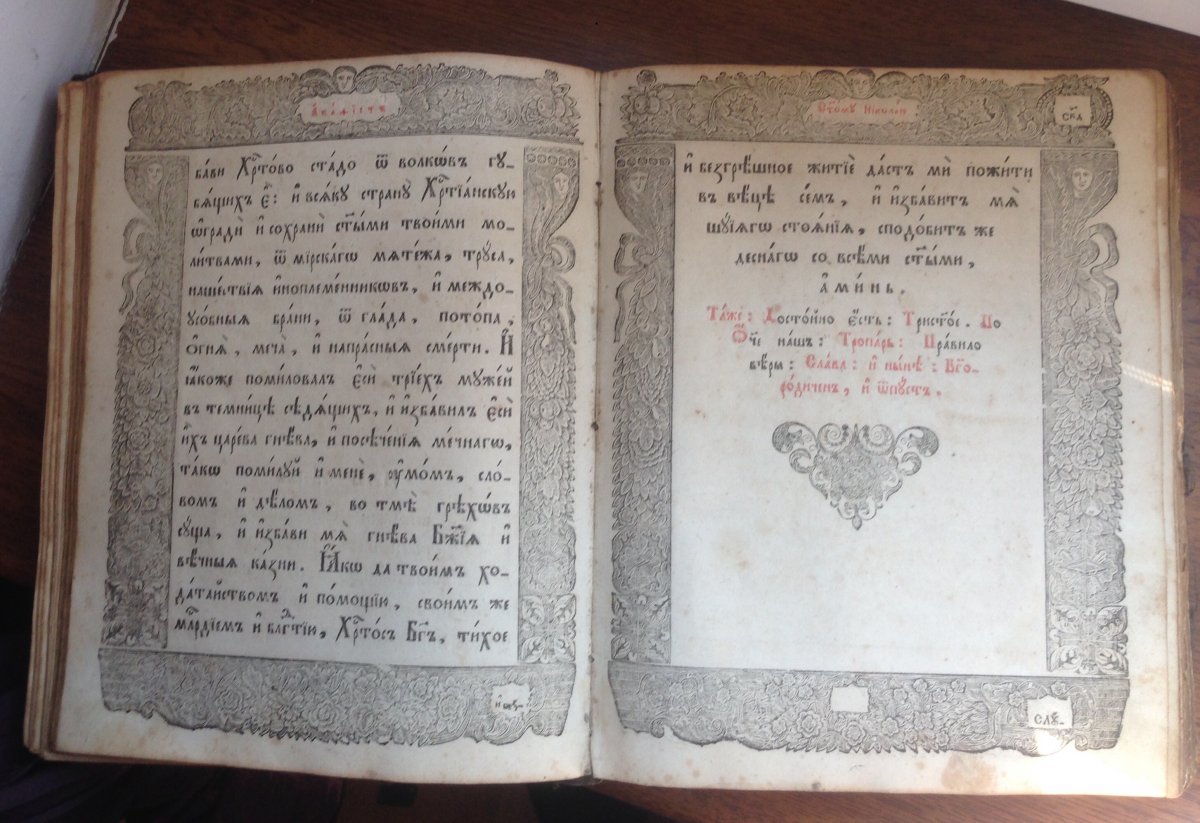 Акаѳістъ
бави Хрⷭ҇то́во ста́до ѿ волкѡ́въ гу-
бѧ́щихъ є҆̀: и҆ всѧ́ку странꙋ̀ Хрⷭ҇тїа́нскую
ѡ҆градѝ и҆ сохранѝ ст҃ы́ми твои́ми мо-
ли́твами, ѿ мірска́гѡ мѧте́жа, трꙋ́са,
наше́ствїѧ и҆ноплеме́нникѡвъ, и҆ междо-
усо́бныѧ бра́ни, ѿ гла́да, пото́па,
ѻ҆гнѧ̀, меча̀, и҆ напра́сныѧ сме́рти. И҆
ꙗ҆́коже поми́ловалъ є҆сѝ трїе́хъ мꙋже́й
въ темни́цѣ сѣдѧ́щихъ, и҆ и҆зба́вилъ є҆сѝ
и҆̀хъ царе́ва гнѣ́ва, и҆ посѣче́нїѧ ме́чнагѡ,
та́кѡ поми́лꙋй и҆ менѐ, ᲂу҆мо́мъ, сло́-
вомъ и҆ дѣ́ломъ, во тмѣ̀ грѣхѡ́въ
сꙋ́ща, и҆ и҆зба́ви мѧ̀ гнѣ́ва Бж҃їѧ и҆
вѣ́чныѧ ка́зни. Ꙗ҆́кѡ да твои́мъ хо-
да́тайствомъ и҆ по́мощїю, свои́мъ же
млⷭ҇рдїемъ и҆ блгⷣтїю, Хрⷭ҇то́съ Бг҃ъ, ти́хое
и҆ без-
Ст҃о́мꙋ Ніко́лаю
ска
и҆ безгрѣ́шное житїѐ да́стъ мѝ пожи́ти
въ вѣ́цѣ се́мъ, и҆ и҆зба́витъ мѧ̀
шꙋ́їѧгѡ стоѧ́нїѧ, сподо́битъ же
десна́гѡ со всѣ́ми ст҃ы́ми,
а҆ми́нь.
Та́же: Досто́йно є҆́сть: Трист҃о́е. По
Ѻ҆́ч҃е на́шъ: Тропа́рь: Пра́вило
вѣ́ры: Сла́ва: и҆ ны́нѣ: Бг҃о-
ро́диченъ, и҆ ѿпꙋ́стъ.
Слꙋ́-